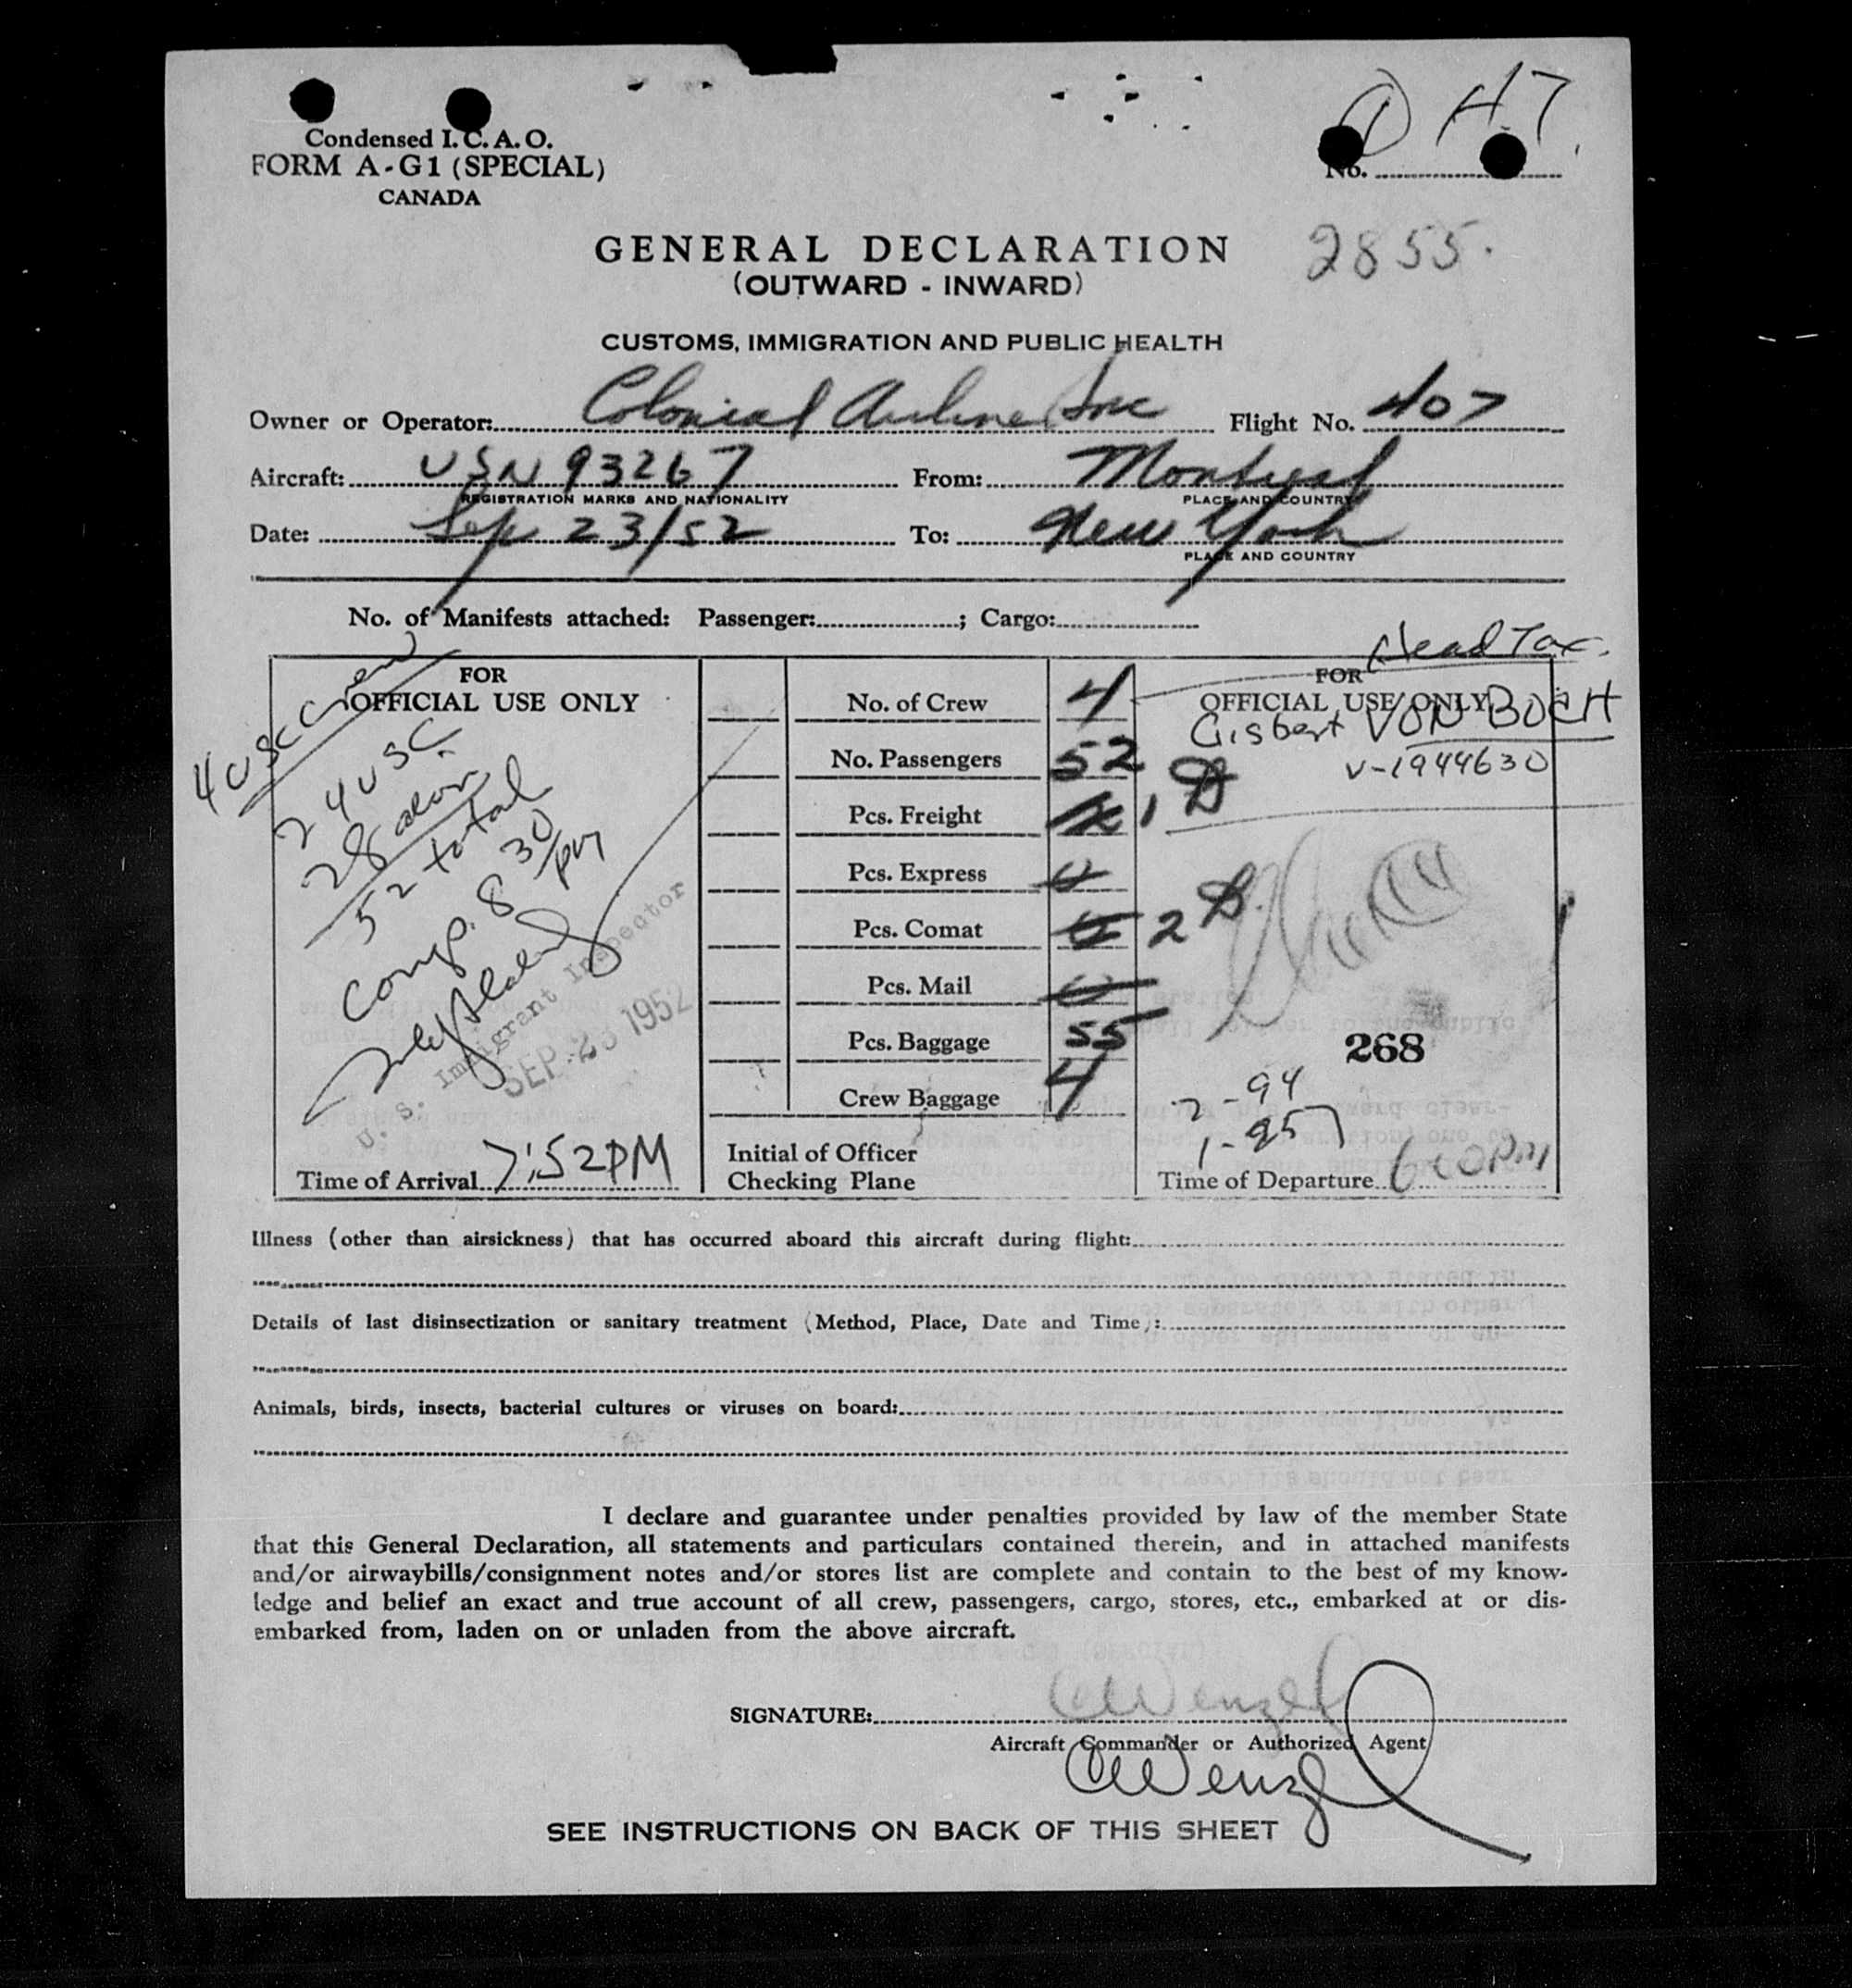 ① H.T.
Condensed I. C. A. O.
FORM A-G1 (SPECIAL)
CANADA
No.
2855.
GENERAL DECLARATION
(OUTWARD - INWARD)
CUSTOMS, IMMIGRATION AND PUBLIC HEALTH
Owner or Operator: Colonial Airlines Inc Flight No. 407
Aircraft: USN 93267 From: Montreal
REGISTRATION MARKS AND NATIONALITY PLACE AND COUNTRY
Date: Sep 23/52 To: New York
PLACE AND COUNTRY
No. of Manifests attached: Passenger: ; Cargo:
Head Tax.
FOR
OFFICIAL USE ONLY
4 USC Crew
24 USC
28 alien
52 total
Comp. 8 30 pm
U. S. Immigrant Inspector
SEP 23 1952
Time of Arrival 7:52 PM
No. of Crew 4
No. Passengers 52
Pcs. Freight 1
Pcs. Express 0
Pcs. Comat 2
Pcs. Mail 0
Pcs. Baggage 55
Crew Baggage 4
Initial of Officer
Checking Plane
FOR
OFFICIAL USE ONLY
Gisbert VON BOCH
V-1944630
268
2-94
1-957
Time of Departure 6:00 PM
Illness (other than airsickness) that has occurred aboard this aircraft during flight:
Details of last disinsectization or sanitary treatment (Method, Place, Date and Time):
Animals, birds, insects, bacterial cultures or viruses on board:
I declare and guarantee under penalties provided by law of the member State
that this General Declaration, all statements and particulars contained therein, and in attached manifests
and/or airwaybills/consignment notes and/or stores list are complete and contain to the best of my know-
ledge and belief an exact and true account of all crew, passengers, cargo, stores, etc., embarked at or dis-
embarked from, laden on or unladen from the above aircraft.
SIGNATURE: CWenzel
Aircraft Commander or Authorized Agent
CWenzel
SEE INSTRUCTIONS ON BACK OF THIS SHEET